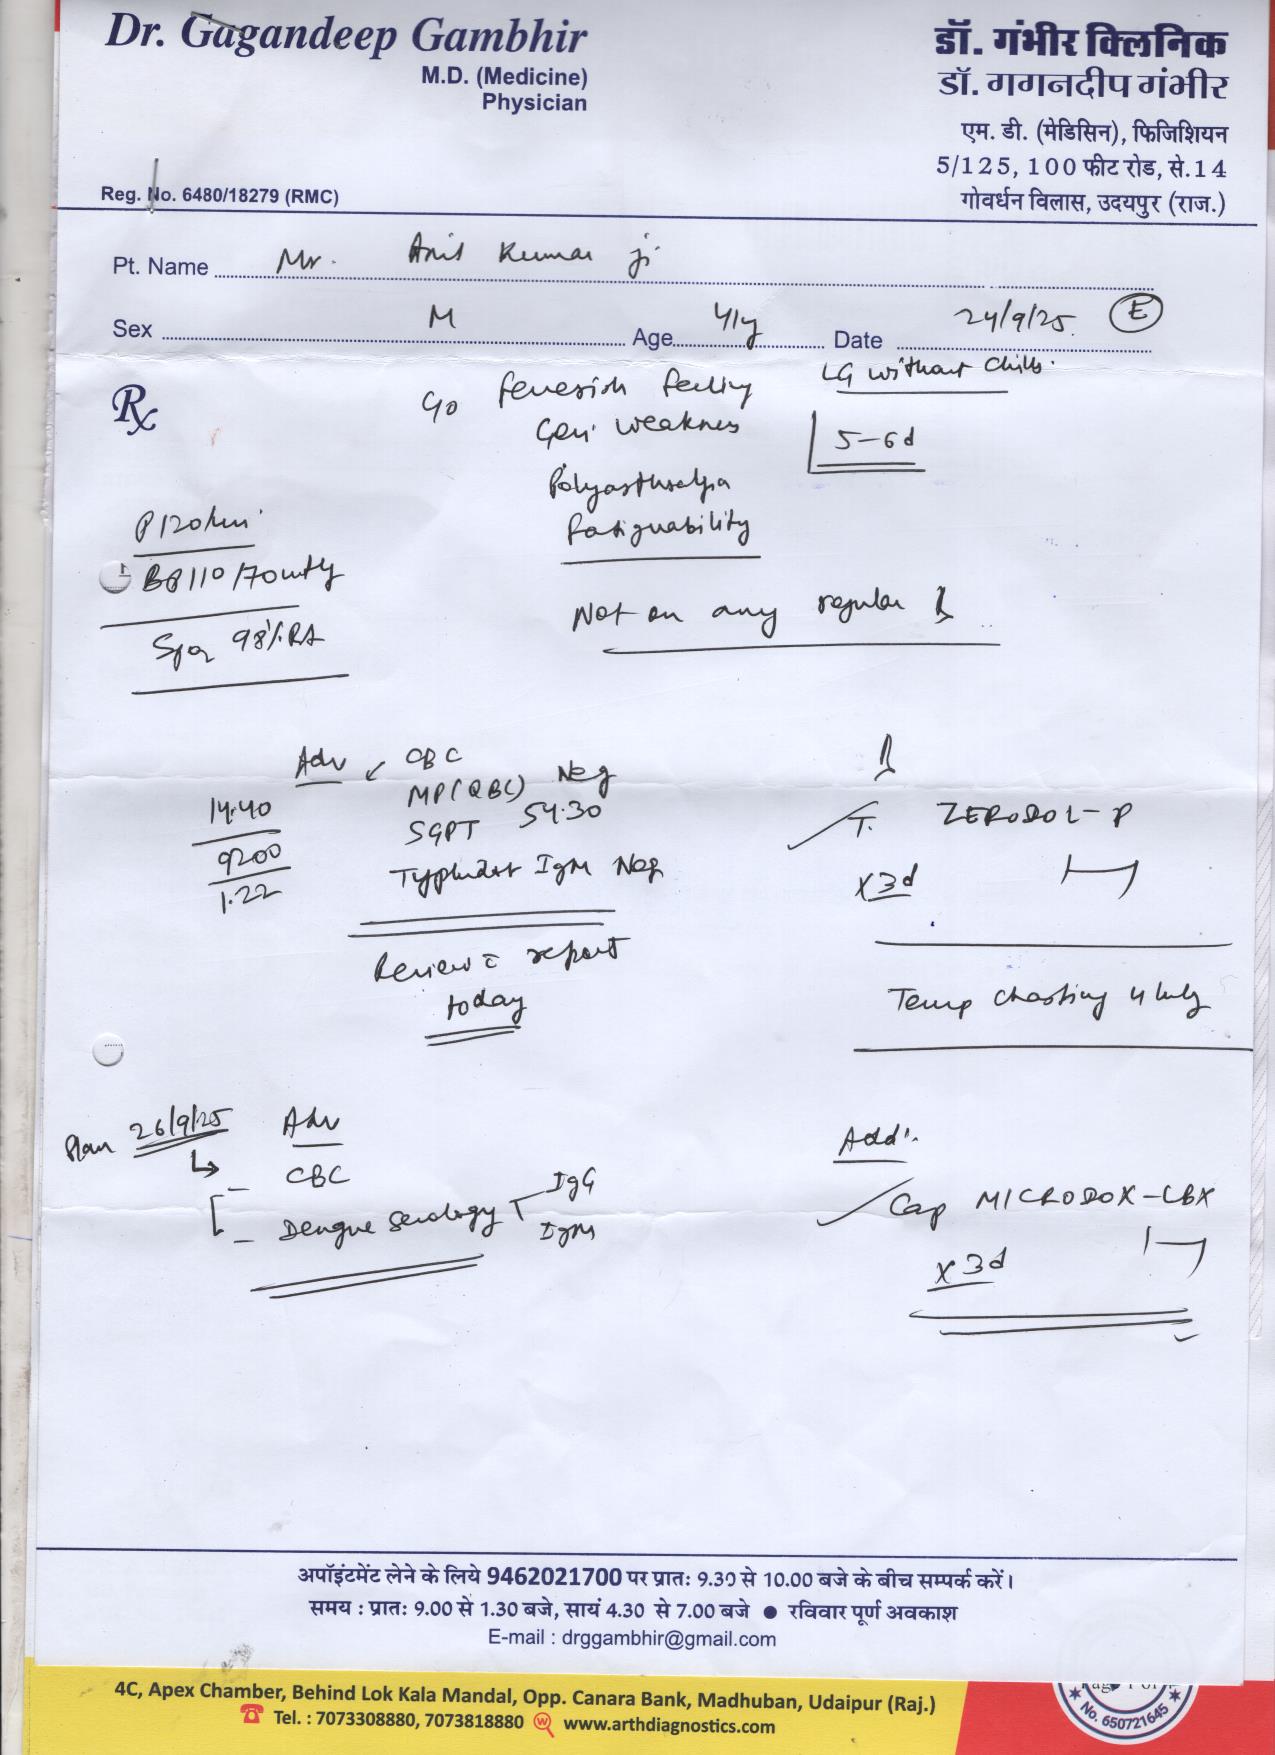 Dr. Gagandeep Gambhir
M.D. (Medicine)
Physician
Reg. No. 6480/18279 (RMC)
डॉ. गंभीर क्लिनिक
डॉ. गगनदीप गंभीर
एम. डी. (मेडिसिन), फिजिशियन
5/125, 100 फीट रोड, से.14
गोवर्धन विलास, उदयपुर (राज.)
Pt. Name Mr. Anil Kumar ji
Sex M Age 41y Date 24/9/25 E
Rx
C/o Feverish feeling LG without chills.
Gen weakness 5-6d
Polyarthralgia
Fatiguability
P 120/min
BP 110/70 mmHg
SpO2 98% RA
Not on any regular
Adv CBC
MP(QBC) Neg
SGPT 54.30
Typhidot IgM Neg
14.40
9200
1.22
Review c report
today
T. ZERODOL-P
x3d
Temp charting 4 hrly
Plan 26/9/25 Adv
CBC
Dengue serology IgG
IgM
Add:
Cap MICRODOX-LBX
x 3d
अपॉइंटमेंट लेने के लिये 9462021700 पर प्रातः 9.30 से 10.00 बजे के बीच सम्पर्क करें।
समय : प्रातः 9.00 से 1.30 बजे, सायं 4.30 से 7.00 बजे ● रविवार पूर्ण अवकाश
E-mail : drggambhir@gmail.com
4C, Apex Chamber, Behind Lok Kala Mandal, Opp. Canara Bank, Madhuban, Udaipur (Raj.)
Tel. : 7073308880, 7073818880 www.arthdiagnostics.com
No. 650721645